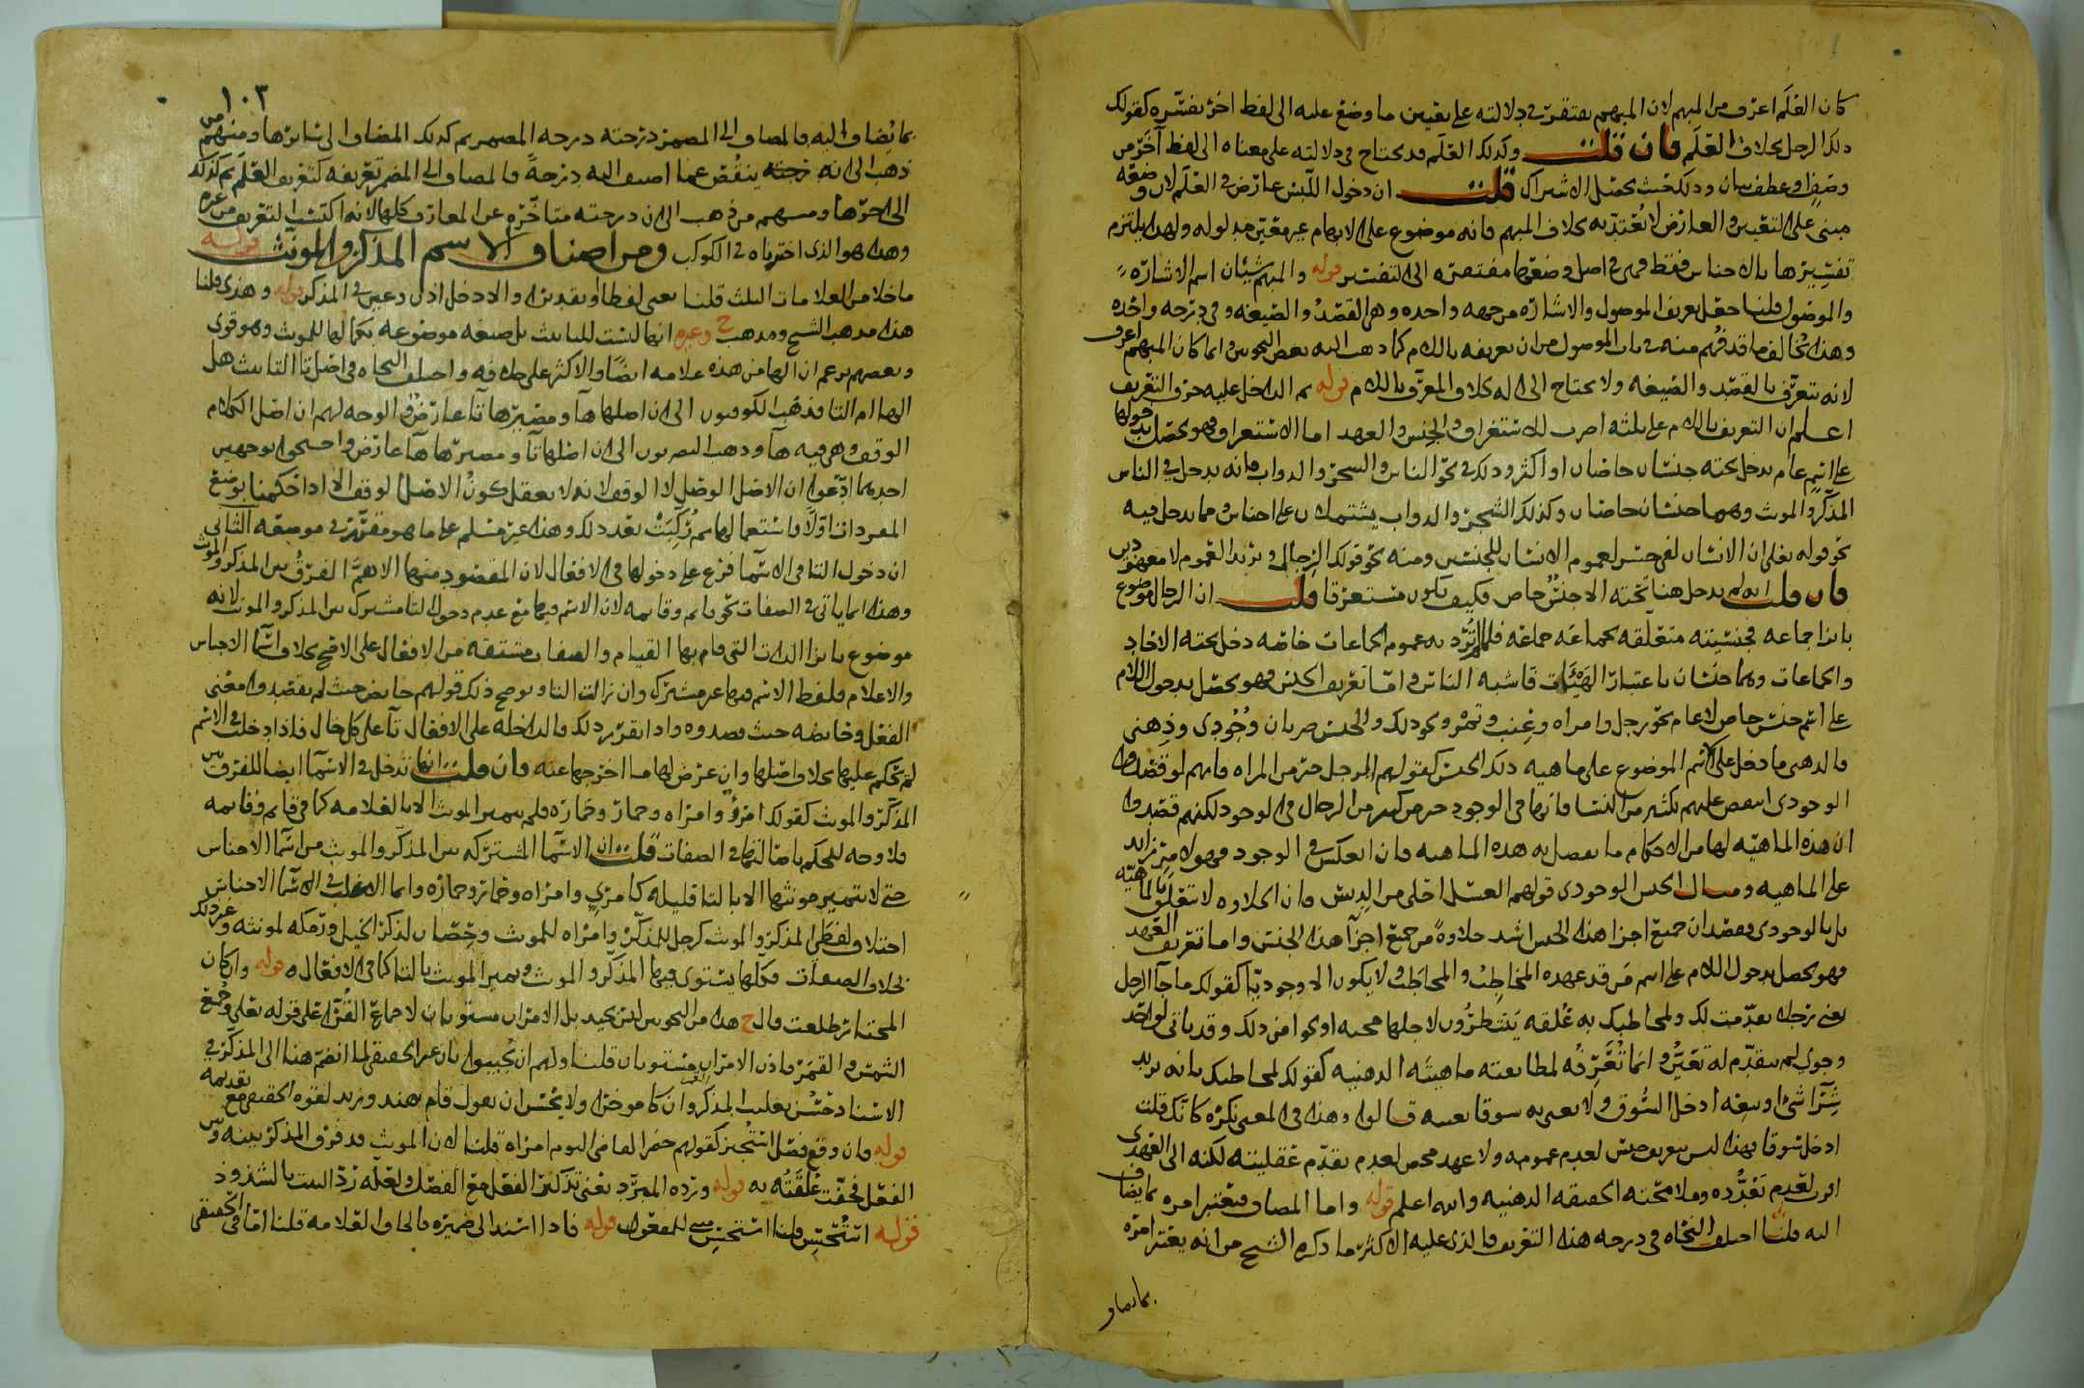 كان العَلَم اعرف من المبهم لان المبهم يفتقر في دلالته على تعيين ما وضع عليه الى لفظ اخر يفسّره كقولك
ذلك الرجل بخلاف العَلَم فان قلت وكذلك العَلَم قد يحتاج في دلالته على معناه الى لفظ آخر من
وصفٍ او عطف بيان وذلك حيث يحصل الاشتراك قلت ان دخول اللبس عارض في العلم لان وضعه
مبنى على التعيين والعارض لا يُعتدّ به بخلاف المبهم فانه موضوع على الابهام غير معيّن مدلوله ولهذا يلتزم
تفسيرها بالاجناس فقط فهي في اصل وضعها مفتقرة الى التفسير قوله والمبهم شيئان اسم الاشارة
والموصول قلنا جعل تعريف الموصول والاشارة من جهه واحده وهى القصدُ والصيغه وفي درجه واحده
وهذا مخالف ما قد فُهم منه في باب الموصول من ان تعريفه باللام كما ذهب اليه بعض النحويين وانما كان المبهم اعرف
لانه يتعرّف بالقصد والصيغه ولا يحتاج الى اله بخلاف المعرّف باللام قوله ثم الداخل عليه حرف التعريف
اعلم ان التعريف باللام على ثلثه اضرب للاستغراق والجنس والعهد اما الاستغراق فهو يحصل بدخولها
على اسمٍ عام يدخل تحته جنسان خاصان او اكثر وذلك في نحو الناس والشجر والدواب فانه يدخل في الناس
المذكر والمونث وهما جنسان خاصان وكذلك الشجر والدواب يشتملان على اجناس ومما يدخل فيه
نحو قوله تعلى ان الانسان لفى خسر لعموم الانسان للجنسين ومنه نحو قولك الرجال وتريد العموم لا معهودين
فان قلت انه لم يدخل هنا تحته الا جنسٌ خاص فكيف يكون مستغرقا قلت ان الرجال موضوع
بازا جماعه فجنسيته متعلقه بجماعه جماعه فلما اُرِيد به عموم الجماعات خاصه دخل تحته الاحاد
والجماعات وهما جنسان باعتبار الهيئات فاشبه الناس واما تعريف الجنس فهو يحصل بدخول اللام
على اسم جنس خاص لا عام نحو رجل وامراه وعِنب وتمر ونحو ذلك والجنس ضربان وُجُودى وذِهنى
فالذهنى ما دخل على الاسم الموضوع على ماهيه ذلك الجنس كقولهم الرجل خير من المراه فانهم لو قصدوا
الوجودى انتقض عليهم بكثير من النسا فانها فى الوجود خير من كثير من الرجال فى الوجود لكنهم قصدوا
ان هذه الماهيّه لها من الاحكام ما تفضل به هذه الماهيه فان انعكس في الوجود فهو لامرٍ زايد
على الماهيه ومثال الجنس الوجودى قولهم العسل احلى من الدبس فان الحلاوه لا تتعلق بالماهيّه
بل بالوجودى وقصد ان جميع اجزا هذا الجنس اشد حلاوةً من جميع اجزآ هذا الجنس واما تعريف العهد
فهو يحصل بدخول اللام على اسم من قد عهده المخاطِبُ والمخاطَبُ ولا يكون الا وجوديّا كقولك ما جآ الرجل
يعنى رجلا تقدّمت لك ولمخاطبك به عُلقه يَنتظرُون لاجلها مجيه او نحوا من ذلك وقد ياتى لواحدٍ
وجودي لم يتقدّم له تعيّنٌ وانما تُعَرِّفُه لمطابقته ماهيته الذهنيه كقولك لمخاطبك بانه يريد
شِرآ شئ او بيعه ادخل السُّوق ولا تعنى به سوقا بعينه قالوا وهذا فى المعنى نكره كانك قلت
ادخل سوقا فهذا ليس بتعريف جنس لعدم عمومه ولا عهد محض لعدم تقدّم عقليته لكنه الى العهدى
اقرب لعدم تعدُّده وملامحته الحقيقه الذهنيه والله اعلم قوله واما المضاف فيعتبر امره بما يضاف
اليه قلنا اختلف النحاه في درجه هذا التعريف فالذى عليه الاكثر ما ذكره الشيخ من انه يعتبر امره
بما يضاف
١٠٣
بما يُضاف اليه فالمضاف الى المضمر درجته درجه المضمر ثم كذلك المضاف الى سائرها ومنهم من
ذهب الى انه ينقُص عما اضيف اليه درجةً فالمضاف الى المضمر تعريفه كتعريف العَلَم ثم كذلك
الى اخرها ومنهم من ذهب الى ان درجته متاخّره عن المعارف كلها لانه اكتسب التعريف من غيره
وهذا هو الذى اخترناه في الكوكب ومن اصناف الاسم المذكر والمونث قوله
ما خلا من العلامات الثلث قلنا يعنى لفظا او تقديرا والا دخل اذن وعين في المذكر قوله وهذى قلنا
هذا مذهب الشيخ ومذهب ح وغيره انها ليست للتانيث بل صيغه موضوعه بكمالها للمونث وهو قوى
وبعضهم يزعم ان الها من هذه علامه ايضًا والاكثر على خلافه واختلف النحاه في اصل تا التانيث هل
الها ام التا فذهب الكوفيون الى ان اصلها هآ ومصيرها تآ عارضٌ والوجه لهم ان اصل الكلام
الوقف وهى فيه هآ وذهب البصريون الى ان اصلها تآ ومصيرها هآ عارض واحتجوا بوجهين
احدهما ادّعوا ان الاصل الوصل لا الوقف لانه لا يعقل كونُ الاصل الوقف الا اذا حكمنا بوضع
المفردات اوّلًا واستعمالها ثم رُكِّبت بعد ذلك وهذا غير مسلم على ما هو مقرّر في موضعه الثانى
ان دخول التا فى الاسمآ فرع على دخولها فى الافعال لان المقصود منها الاهمَّ الفرقُ بين المذكر والمونث
وهذا انما ياتى في الصفات نحو قايم وقايمه لان الاسم فيها مع عدم دخول التا مشترك بين المذكر والمونث لانه
موضوع بازا الذات التى قام بها القيام والصفات مشتقه من الافعال على الاصح بخلاف اسما الاجناس
والاعلام فلفظ الاسم فيها غير مشترك وان زالت التا ويوضح ذلك قولهم حايض حيث لم يقصدوا معنى
الفعل وحايضه حيث قصدوه واذا تقرر ذلك فالداخله على الافعال تآ على كل حال فاذا دخلت في الاسم
لم تحكم عليها بخلاف اصلها وان عرض لها ما اخرجها عنه فان قلت انها تدخل في الاسمآ ايضا للفرق بين
المذكر والمونث كقولك امرؤ وامراه وحمار وحمارة فلم يتميز المونث الا بالعلامه كما في قايم وقايمه
فلا وجه للحكم باصالتها في الصفات قلت ان الاسمآ المشتركه بين المذكر والمونث من اسمآ الاجناس
حتى لا يتميز مونثها الا بالتا قليله كامرئ وامراه وحمار وحمارة وانما الاغلب في الاسمآ الاجناس
اختلاف لفظى المذكر والمونث كرجل للمذكر وامراه للمونث وحِصان لذكر الخيل ورَمَكه لمونثه وغير ذلك
بخلاف الصفات فكلها يستوى فيها المذكر والمونث ويتميز المونث بالتا كما فى الافعال قوله وان كان
المختار طلعت قال ح هذا من النحويين ليس بجيد بل الامران مستويان لاجماع القُرّآ على قوله تعلى وجُمِع
الشمس والقمر فاذن الامران مستويان قلنا ولهم ان يُجيبوا بان غير الحقيقى لما انضم هنا الى المذكر في
الاسناد حَسُن تغليب المذكر وان كان موخرا ولا يحسُن ان تقول قام هند وزيد لقوه الحقيقى مع تقديمه
قوله فان وقع فصل استُجيز كقولهم حضر القاضى اليوم امراة قلنا لان المونث قد فرق المذكر بينه وبين
الفعل فخفّت عُلقتُه به قوله وردّه المبرّد يعنى تذكير الفعل مع الفصل ولعلّه ردّ البيت بالشذوذ
قوله استُحسِن قلنا استُحسِن مبنى للمفعول قوله فاذا اسند الى ضميره فالحاق العلامه قلنا اما فى الحقيقى